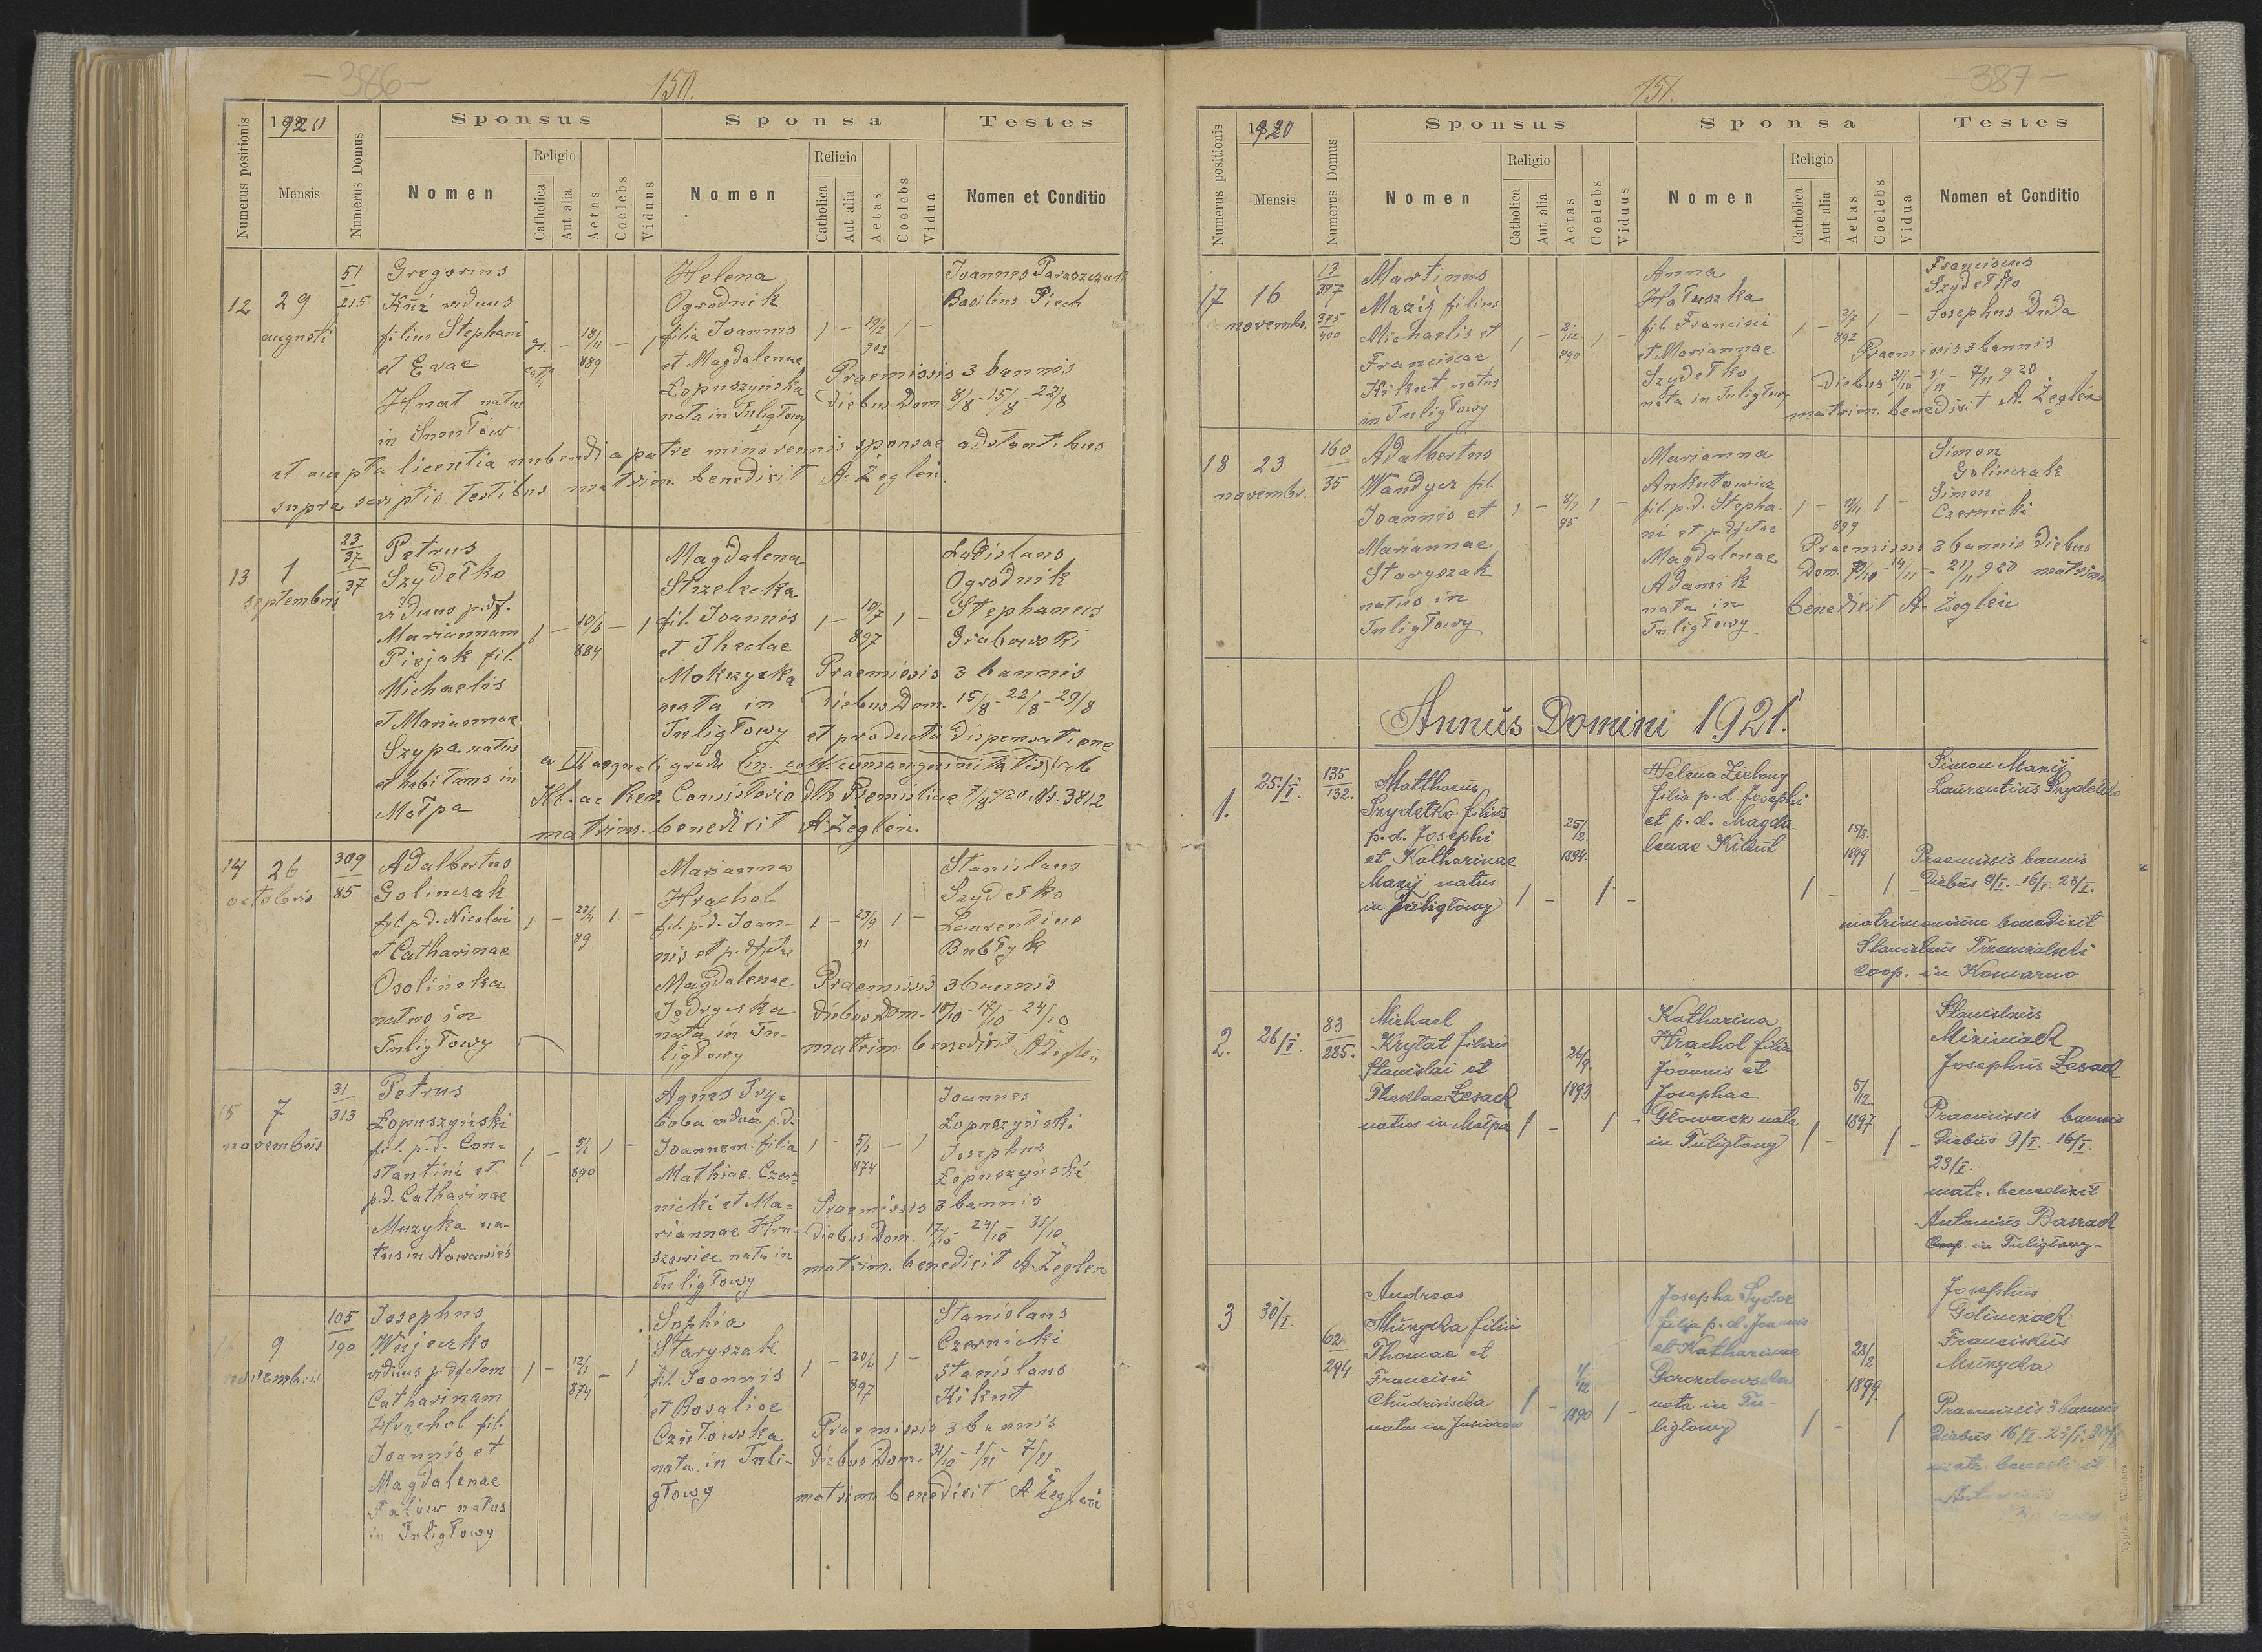 -386-
150.
Numerus positionis
1920
Mensis
Numerus Domus
Sponsus
Sponsa
Testes
Nomen
Religio
Catholica
Aut alia
Aetas
Coelebs
Viduus
Nomen
Religio
Catholica
Aut alia
Aetas
Coelebs
Vidua
Nomen et Conditio
12
29
augusti
51
215
Gregorius
Kuź viduus
filius Stephani
et Evae
Hnat natus
in
gr.
cath.
—
18/11
889
—
1
Helena
Ogrodnik
filia Joannis
et Magdalenae
Łopuszyńska
nata in Tuligłowy
1
—
19/2
902
1
—
Joannes Paraszczak
Basilius Piech
Praemissis 3 bannis
diebus Dom. 8/8 - 15/8 - 22/8
et accepta licentia nubendi a patre minorennis sponsae adstantibus
supra scriptis testibus matrim. benedixit A. Żegleń.
13
1
septembris
23
37
37
Petrus
Szydełko
viduus p. df.
Mariannam
Pizjak fil.
Michaelis
et Mariannae
Szypa natus
et habitans in
Małpa
1
—
10/6
884
—
1
Magdalena
Strzelecka
fil. Joannis
et Theclae
Mokrzycka
nata in
Tuligłowy
1
—
10/7
897
1
—
Ladislaus
Ogrodnik
Stephanus
Grabowski
Praemissis 3 bannis
diebus Dom. 15/8 - 22/8 - 29/8
et producta dispensatione
a III aequali gradu (in. coll. consanguinitatis) ab
Ill. ac Rev. Consistorio dto Premisliae 7/8 920 Nr. 3812
matrim. benedixit A. Żegleń.
14
26
octobris
309
85
Adalbertus
Golinczak
fil. p. d. Nicolai
et Catharinae
Osolinska
natus in
Tuligłowy
1
—
23/4
89
1
—
Marianna
Hrachol
fil. p. d. Joan-
nis et p. dfctae
Magdalenae
Jedryska
nata in Tu-
ligłowy
1
—
23/9
91
1
—
Stanislaus
Szydełko
Laurentius
Bubłyk
Praemissis 3 bannis
diebus Dom. 10/10 - 17/10 - 24/10
matrim. benedixit A Żegleń
15
7
novembris
31
313
Petrus
Łopuszyński
fil. p. d. Con=
stantini et
p. d. Catharinae
Muzyka na-
tus in Nowawieś
1
—
5/1
890
1
—
Agnes Try-
boba vidua p. d.
Joannem filia
Mathiae Czer=
nicki et Ma=
riannae Hru-
szowiec nata in
Tuligłowy
1
—
5/1
874
—
1
Joannes
Łopuszyński
Josephus
Łopuszyński
Praemissis 3 bannis
diebus Dom. 17/10 - 24/10 - 31/10
matrim. benedixit A. Żegleń
9
novembris
105
190
Josephus
Wujeczko
viduus p. dfctam
Catharinam
Hrachol fil.
Joannis et
Magdalenae
Falów natus
in Tuligłowy
1
—
12/1
874
—
1
Sophia
Staryszak
fil. Joannis
et Rosaliae
nata in Tuli-
głowy
1
—
20/4
897
1
—
Stanislaus
Czernicki
Stanislaus
Kikut
Praemissis 3 bannis
diebus Dom. 31/10 - 1/11 - 7/11
matrim. benedixit A Żegleń
-387-
151.
Numerus positionis
1920
Mensis
Numerus Domus
Sponsus
Sponsa
Testes
Nomen
Religio
Catholica
Aut alia
Aetas
Coelebs
Viduus
Nomen
Religio
Catholica
Aut alia
Aetas
Coelebs
Vidua
Nomen et Conditio
17
16
novembr.
13
397
375
400
Martinus
Mazij filius
Michaelis et
Franciscae
Kikut natus
in Tuligłowy
1
—
2/12
890
1
—
Anna
Hałuszka
fil. Francisci
et Mariannae
Szydełko
nata in Tuligłowy
1
—
2/7
892
1
—
Franciscus
Szydełko
Josephus Duda
Praemissis 3 bannis
diebus 31/10 - 1/11 - 7/11 920
matrim. benedixit A. Żegleń
18
23
novembr.
160
35
Adalbertus
Wandycz fil.
Joannis et
Mariannae
Staryszak
natus in
Tuligłowy
1
—
8/1
95
1
—
Marianna
Ankutowicz
fil. p. d. Stepha-
ni et p. dfctae
Magdalenae
Adamik
nata in
Tuligłowy
1
—
899
1
—
Simon
Golinczak
Simon
Czernicki
Praemissis 3 bannis diebus
Dom. - 14/11 - 21/11 920 matrim.
benedixit A. Żegleń
Annus Domini 1921.
1.
25/I.
135
132.
Matthaeus
Szydełko filius
p. d. Josephi
et Katharinae
Mazij natus
in Tuligłowy
1
—
25/2.
1894.
1
—
Helena Zielony
filia p. d. Josephi
et p. d. Magda-
lenae Kikut
1
—
15/8.
1899
1
—
Simon Mazij
Laurentius Szydełko
Praemissis bannis
Diebus 9/I. - 16/I. 23/I.
matrimonium benedixit
Stanislaus
Coop. in Komarno
2.
26/I.
83
285.
Michael
Krytat filius
Stanislai et
Theklae Lesack
natus in Małpa
1
—
26/9.
1893
1
—
Katharina
Hrachol filia
Joannis et
Josephae
Głowacz nata
in Tuligłowy
1
—
5/12
1897
1
—
Stanislaus
Josephus Lesack
Praemissis bannis
Diebus 9/I. - 16/I.
23/I.
matr. benedixit
Antonius Baszack
Coop. in Tuligłowy.
3
30/I.
62.
294.
Andreas
Muzycka filius
Thomae et
Francisci
natus in
1
—
1890
1
—
Josepha Sydor
filia p. d. Joannis
et Katharinae
Gorozdowska
nata in Tu-
ligłowy
1
—
23/2.
1899.
1
Josephus
Golinczack
Franciskus
Muzycka
Praemissis 3 bannis
Diebus 16/I. 23/I. 30/I.
matr. benedixit
Antonius